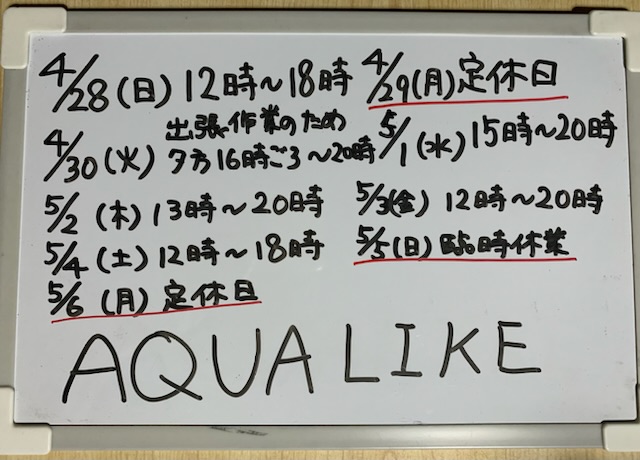 4/28(日)12時〜18時 4/29(月)定休日
4/30(火)出張、作業のため夕方16時ごろ〜20時 5/1(水)15時〜20時
5/2(木)13時〜20時 5/3(金)12時〜20時
5/4(土)12時〜18時 5/5(日)臨時休業
5/6(月)定休日
AQUA LIKE